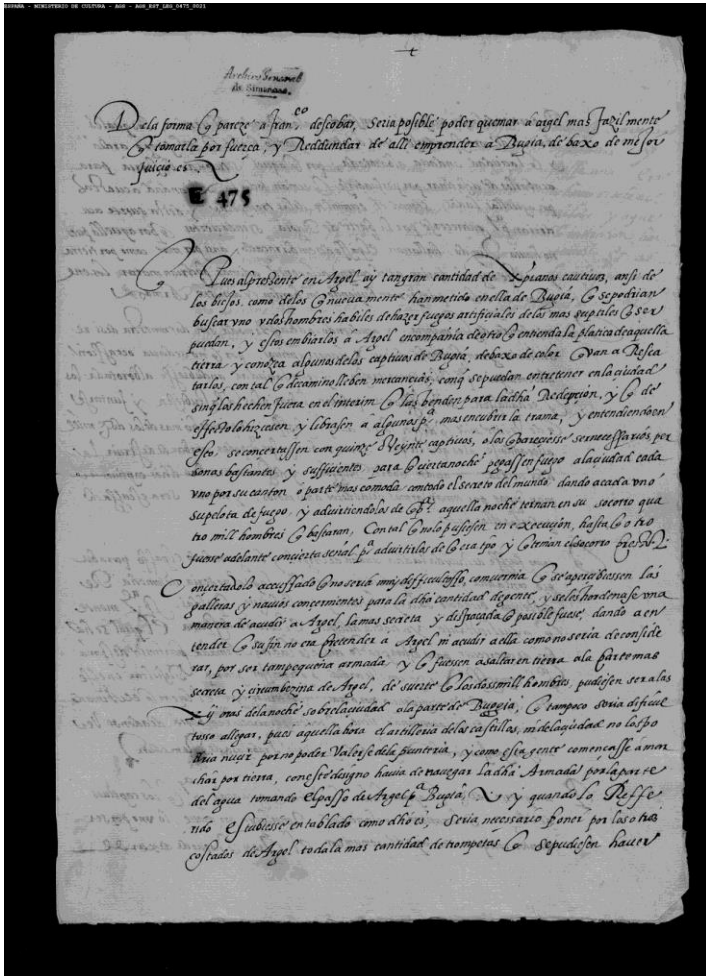 ESPAÑA - MINISTERIO DE CULTURA - AGS - AGS_EST_LEG_0475_0021
Archivo General
de Simancas
De la forma q pareze a fran.co descobar, seria posible poder quemar a argel mas facilmente
q tomarla por fuerça, y Reddundar de alli emprender a Bugia, de baxo de mejor
juiçio es
E 475
Pues al pressente en Argel ay tan gran cantidad de Xpianos cautivos, ansi de
los biejos, como de los q nuevamente han metido en ella de Bugia, q se podrian
buscar uno y dos hombres habiles de hazer fuegos artifiçiales de las mas suptiles q ser
puedan, y estos embiarlos a Argel en compañia de otro q entienda la platica de aquella
tierra y conozca algunos de los captivos de Bugia, debaxo de color q van a Resca
tarlos, con tal q de camino lleben mercancias, conq se puedan entretener en la ciudad
sinq los hechen fuera en el interim q las benden para la dha Redepçion, y q de
effecto lo hiziesen y librasen a algunos p.a mas encubrir la trama, y entendiendo en
esto se concertassen con quinze o Veynte captivos, o los q pareçiesse ser necessarios per
sonas bastantes y sufficientes para q çierta noche pegassen fuego a la ciudad cada
uno por su canton o parte mas comoda con todo el secreto del mundo dando a cada uno
su pelota de fuego, y advirtiendolos de q aquella noche ternan en su socorro qua
tro mill hombres q bastaran, Con tal q no lo pusiesen en execuçion, hasta q otro
fuese adelante con cierta señal p.a advirtirlos de q era tpo y q tenian el socorro presto
Conçertado lo accussado q no seria muy difficultosso, convernia q se aperçibiessen las
galleras y navios conçernientes para la dha cantidad de gente, y se les hordenase una
manera de acudir a Argel, la mas secreta y disfraçada q posible fuese, dando a en
tender q su fin no era pretender a Argel ni acudir a ella como no seria de conside
rar, por ser tam pequeña armada y q fuessen a saltar en tierra a la parte mas
secreta y circumbezina de Argel, de suerte q los doss mill hombres, pudiesen ser a las
oras de la noche sobre la çiudad a la parte de Bugia, q tampoco seria dificul
tosso allegar, pues a quella hora el artilleria de los castillos, ni de la çiudad no los po
dria nuzir por no poder Valerse de la punteria, y como esa gente començasse a mar
char por tierra, con este disigno havia de navegar la dha Armada por la parte
del agua tomando el passo de Argel p.a Bugia, y quando lo Reffe
rido estubiesse entablado como dho es, seria necessario poner por los otros
costados de Argel toda la mas cantidad de trompetas q se pudiesen haver